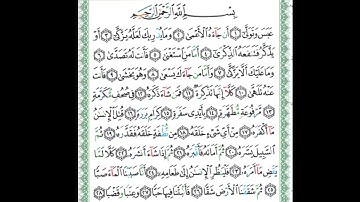 بِسْمِ ٱللَّهِ ٱلرَّحْمَٰنِ ٱلرَّحِيمِ
عَبَسَ وَتَوَلَّىٰٓ ١ أَن جَآءَهُ ٱلْأَعْمَىٰ ٢ وَمَا يُدْرِيكَ لَعَلَّهُۥ يَزَّكَّىٰٓ ٣ أَوْ
يَذَّكَّرُ فَتَنفَعَهُ ٱلذِّكْرَىٰٓ ٤ أَمَّا مَنِ ٱسْتَغْنَىٰ ٥ فَأَنتَ لَهُۥ تَصَدَّىٰ ٦
وَمَا عَلَيْكَ أَلَّا يَزَّكَّىٰ ٧ وَأَمَّا مَن جَآءَكَ يَسْعَىٰ ٨ وَهُوَ يَخْشَىٰ ٩ فَأَنتَ
عَنْهُ تَلَهَّىٰ ١٠ كَلَّآ إِنَّهَا تَذْكِرَةٌ ١١ فَمَن شَآءَ ذَكَرَهُۥ ١٢ فِى صُحُفٍ مُّكَرَّمَةٍ
١٣ مَّرْفُوعَةٍ مُّطَهَّرَةٍۭ ١٤ بِأَيْدِى سَفَرَةٍ ١٥ كِرَامٍۭ بَرَرَةٍ ١٦ قُتِلَ ٱلْإِنسَٰنُ
مَآ أَكْفَرَهُۥ ١٧ مِنْ أَىِّ شَىْءٍ خَلَقَهُۥ ١٨ مِن نُّطْفَةٍ خَلَقَهُۥ فَقَدَّرَهُۥ ١٩ ثُمَّ
ٱلسَّبِيلَ يَسَّرَهُۥ ٢٠ ثُمَّ أَمَاتَهُۥ فَأَقْبَرَهُۥ ٢١ ثُمَّ إِذَا شَآءَ أَنشَرَهُۥ ٢٢ كَلَّا لَمَّا
يَقْضِ مَآ أَمَرَهُۥ ٢٣ فَلْيَنظُرِ ٱلْإِنسَٰنُ إِلَىٰ طَعَامِهِۦٓ ٢٤ أَنَّا صَبَبْنَا ٱلْمَآءَ صَبًّا
٢٥ ثُمَّ شَقَقْنَا ٱلْأَرْضَ شَقًّا ٢٦ فَأَنۢبَتْنَا فِيهَا حَبًّا ٢٧ وَعِنَبًا وَقَضْبًا ٢٨